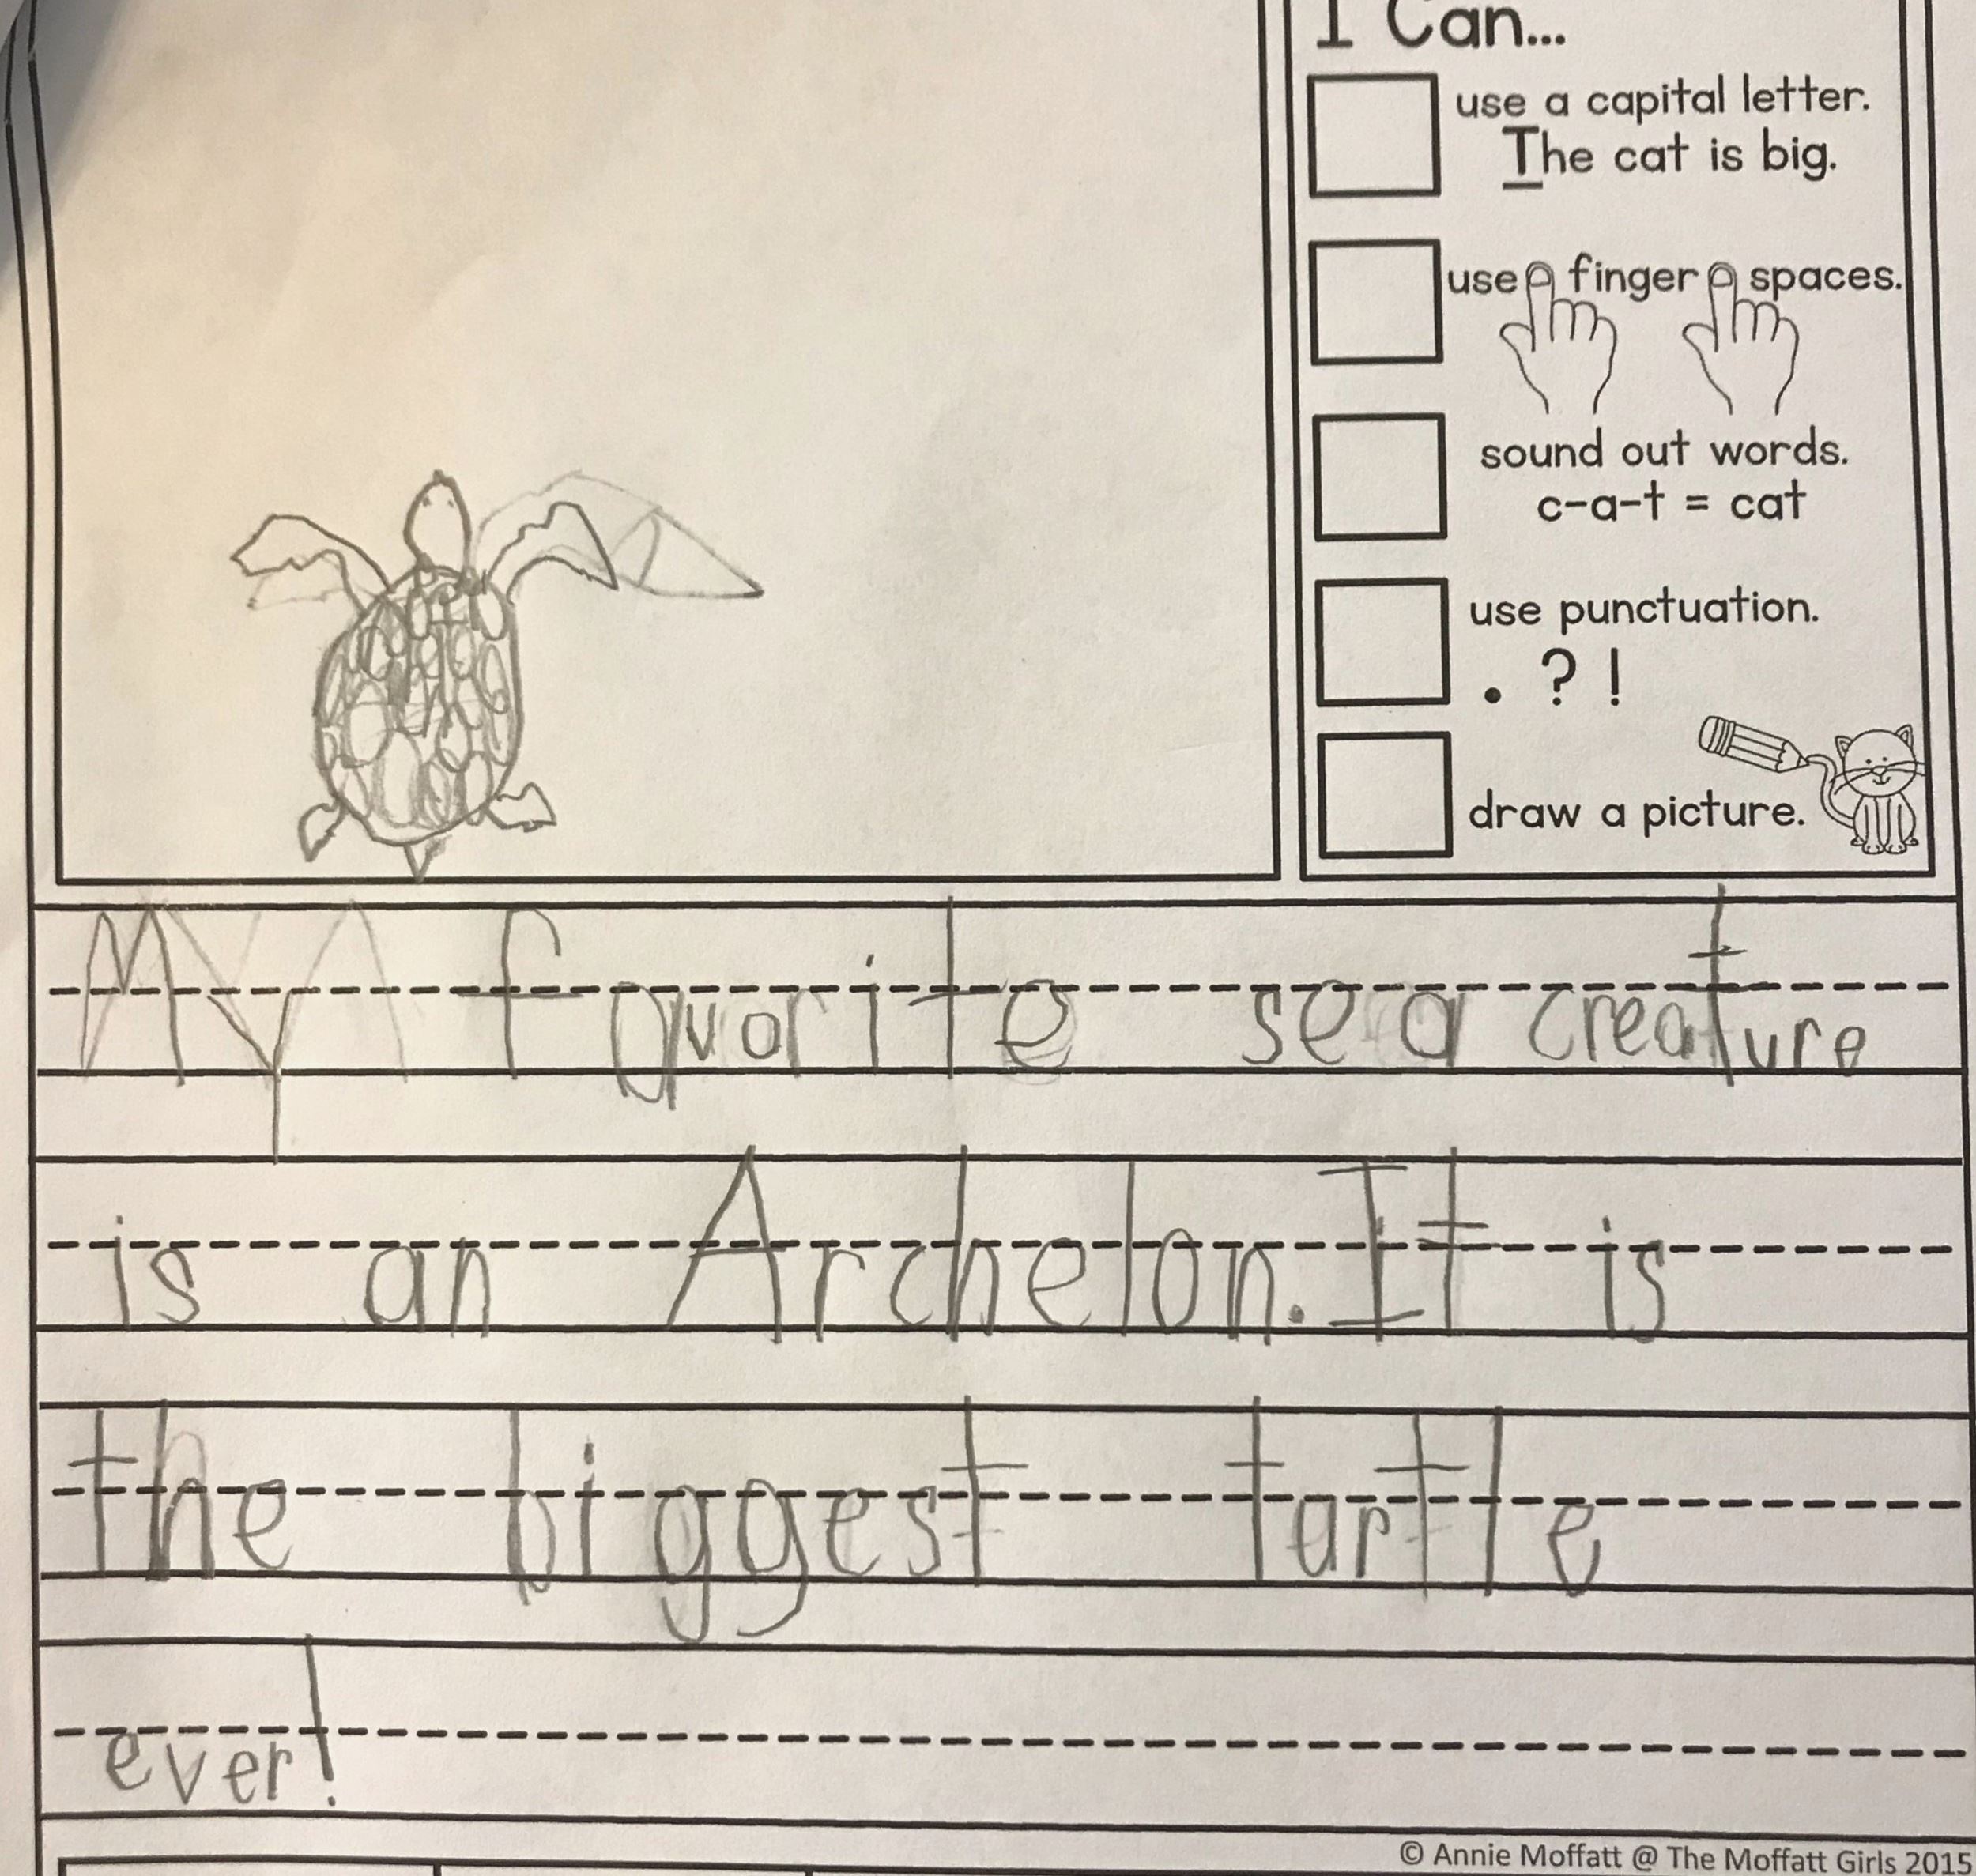 I Can...
use a capital letter.
The cat is big.
use finger spaces.
sound out words.
c-a-t = cat
use punctuation.
. ? !
draw a picture.
My favorite sea creature
is an Archelon. It is
the biggest turtle
ever!
© Annie Moffatt @ The Moffatt Girls 2015